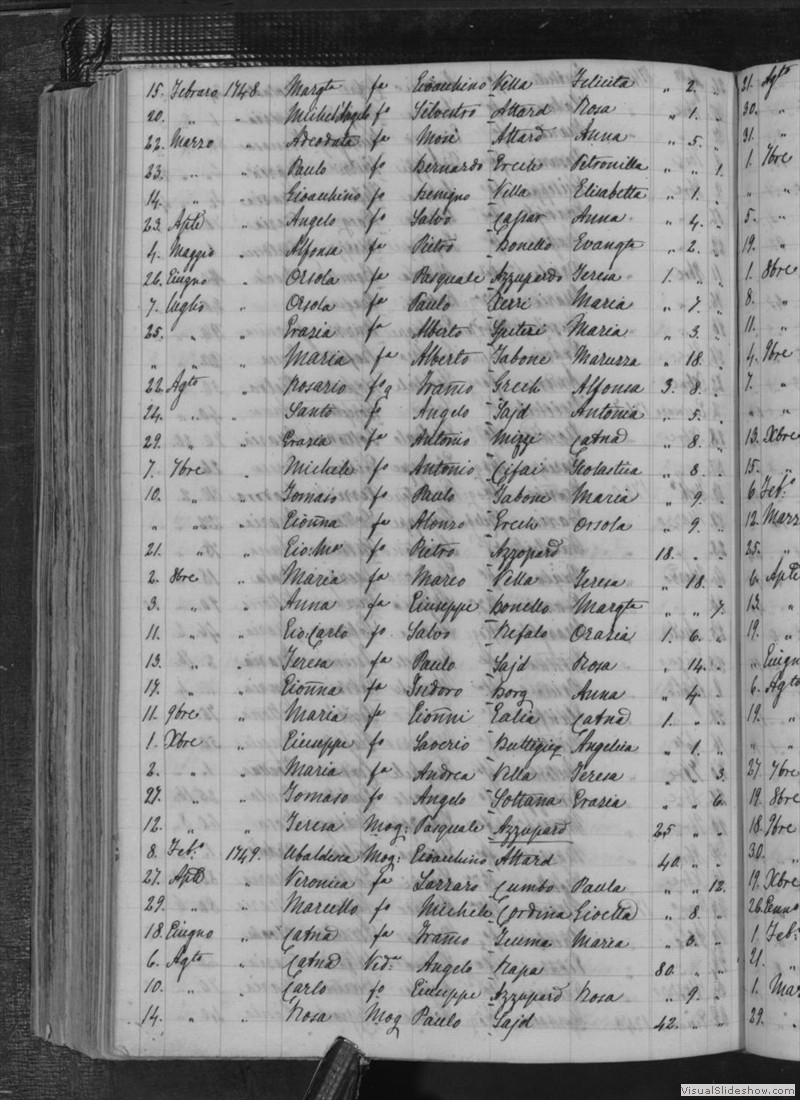 15. Febraro 1748. Margta fa Gioachino Villa Felicita " 2. "
20. " " Michel'Angelo fo Silvestro Attard Rosa " 1. "
22. Marzo " Adeodata fa Mosè Attard Anna " 5. "
23. " " Paulo fo Bernardo Grech Petronilla " " 1.
14. " " Gioachino fo Benigno Villa Elisabetta " 1. "
23. Aple " Angelo fo Salvo Caspar Anna " 4. "
4. Maggio " Alfonsa fa Pietro Bonello Evangta " 2. "
26. Giugno " Orsola fa Pasquale Azzupardo Teresa 1. " "
7. Luglio " Orsola fa Paulo Xerri Maria " 7. "
25. " " Grazia fa Alberto Spiteri Maria " 3. "
" " Maria fa Alberto Tabone Maruzza " 18. "
22. Agto " Rosario fog Franco Grech Alfonsa 3. 8. "
24. " " Santo fo Angelo Sajd Antonia " 5. "
29. " Grazia fa Antonio Mizzi Catna " 8. "
7. 7bre " Michele fo Antonio Cifai Scolastica " 8. "
10. " " Tomaso fo Paulo Tabone Maria " 9. "
" " " Gionna fa Alonzo Grech Orsola " 9. "
21. " " Gio:Ma fo Pietro Azzopard 18. " "
2. 8bre " Maria fa Marco Villa Teresa " 18. "
3. " " Anna fa Giuseppe Bonello Margta " " 7.
11. " " Gio:Carlo fo Salvo Refalo Orazia 1. 6. "
13. " " Teresa fa Paulo Sajd Rosa " 14. "
17. " " Gionna fa Isidoro Borg Anna " 4. "
11. 9bre " Maria fa Gionni Galia Catna 1. " "
1. Xbre " Giuseppe fo Saverio Buttigieg Angelica " 1. "
2. " " Maria fa Andrea Villa Teresa " " 3.
27. " " Tomaso fo Angelo Sottana Grazia " " 6.
12. " " Teresa Mog: Pasquale Azzupard 25 " "
8. Feb.o 1749. Ubaldesca Mog: Gioachino Attard 40. " "
27. Aple " Veronica fa Lazzaro Cumbo Paula " " 12.
29. " " Marcello fo Michele Cordina Gioetta " 8. "
18. Giugno " Catna fa Franco Xeuma Maria " "
6. Agto " Catna Vida Angelo Rapa 80. " "
10. " " Carlo fo Giuseppe Azzupard Rosa " 9. "
14. " " Rosa Mog Paulo Sajd 42. " "
31. Agto
30. "
31. "
1. 7bre
" "
5. "
19. "
1. 8bre
8. "
11. "
4. 9bre
7. "
" "
13. Xbre
15. "
6. Feb.o
12. Marz
25. "
6. Aple
13. "
19. "
" Giugn
6. Agto
19. "
" "
27. 7bre
19. 8bre
18. 9bre
30. "
19. Xbre
26. Genno
1. Feb.o
21. "
1. Mar
29. "
VisualSlideshow.com